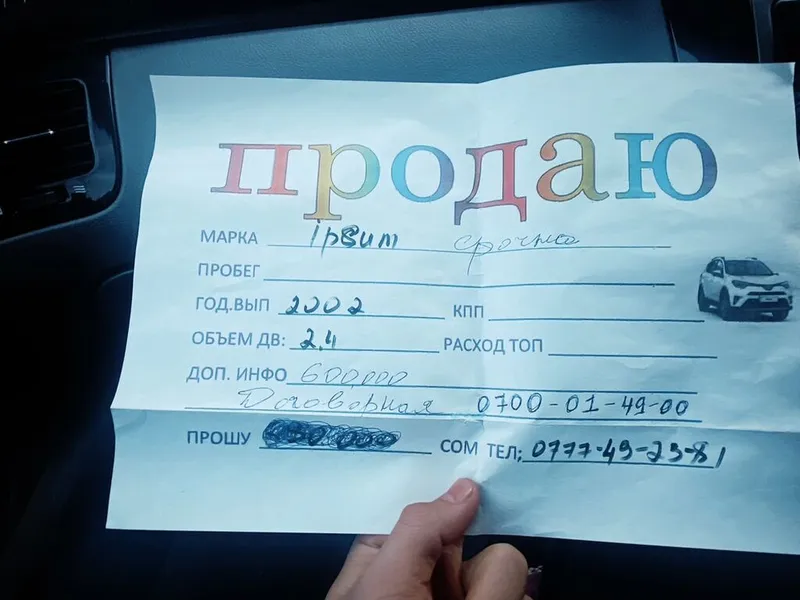 продаю
МАРКА ipsum срочно
ПРОБЕГ
ГОД.ВЫП 2002 КПП
ОБЪЕМ ДВ: 2,4 РАСХОД ТОП
ДОП. ИНФО 600,000
Договорная 0700-01-49-00
ПРОШУ СОМ ТЕЛ; 0777-49-23-81